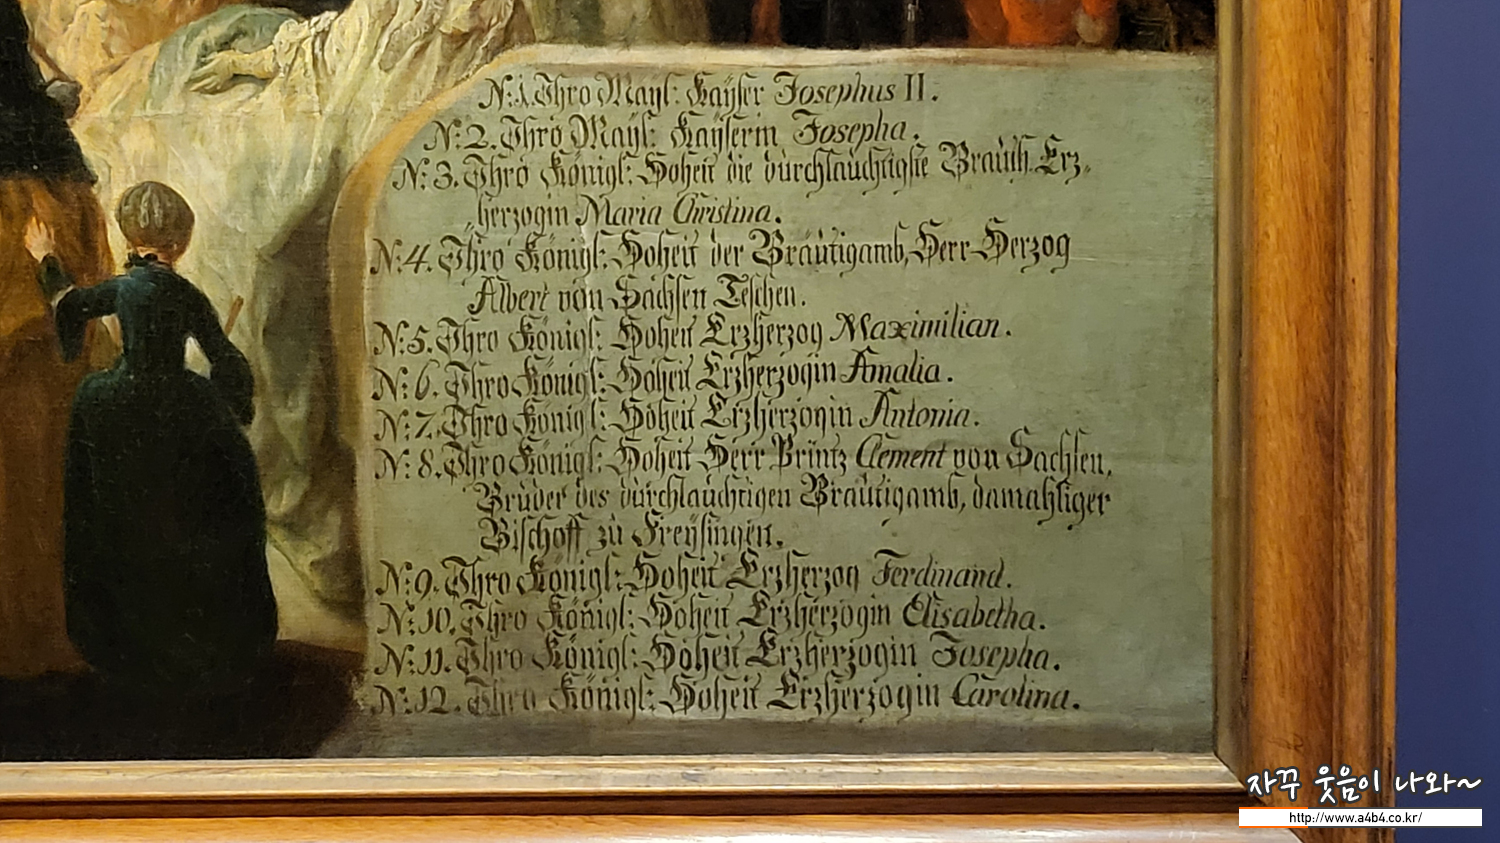 N: 1. Ihro Mayſ: Kaÿſer Josephus II.
N: 2. Ihro Mayſ: Kaÿſerin Josepha.
N: 3. Ihro Königl: Hoheit die dürchlaüchtigſte Braüth Erz„
„herzogin Maria Christina.
N: 4. Ihro Königl: Hoheit der Braütigamb, Herr Herzog
Albert von Sachſen Teſchen.
N: 5. Ihro Königl: Hoheit Erzherzog Maximilian.
N: 6. Ihro Königl: Hoheit Erzherzogin Amalia.
N: 7. Ihro Königl: Hoheit Erzherzogin Antonia.
N: 8. Ihro Königl: Hoheit Herr Printz Clement von Sachſen,
Brüder des dürchlaüchtigen Braütigamb, damahliger
Biſchoff zü Freÿſingen.
N: 9. Ihro Königl: Hoheit Erzherzog Ferdinand.
N: 10. Ihro Königl: Hoheit Erzherzogin Elisabetha.
N: 11. Ihro Königl: Hoheit Erzherzogin Josepha.
N: 12. Ihro Königl: Hoheit Erzherzogin Carolina.
자꾸 웃음이 나와~
http://www.a4b4.co.kr/